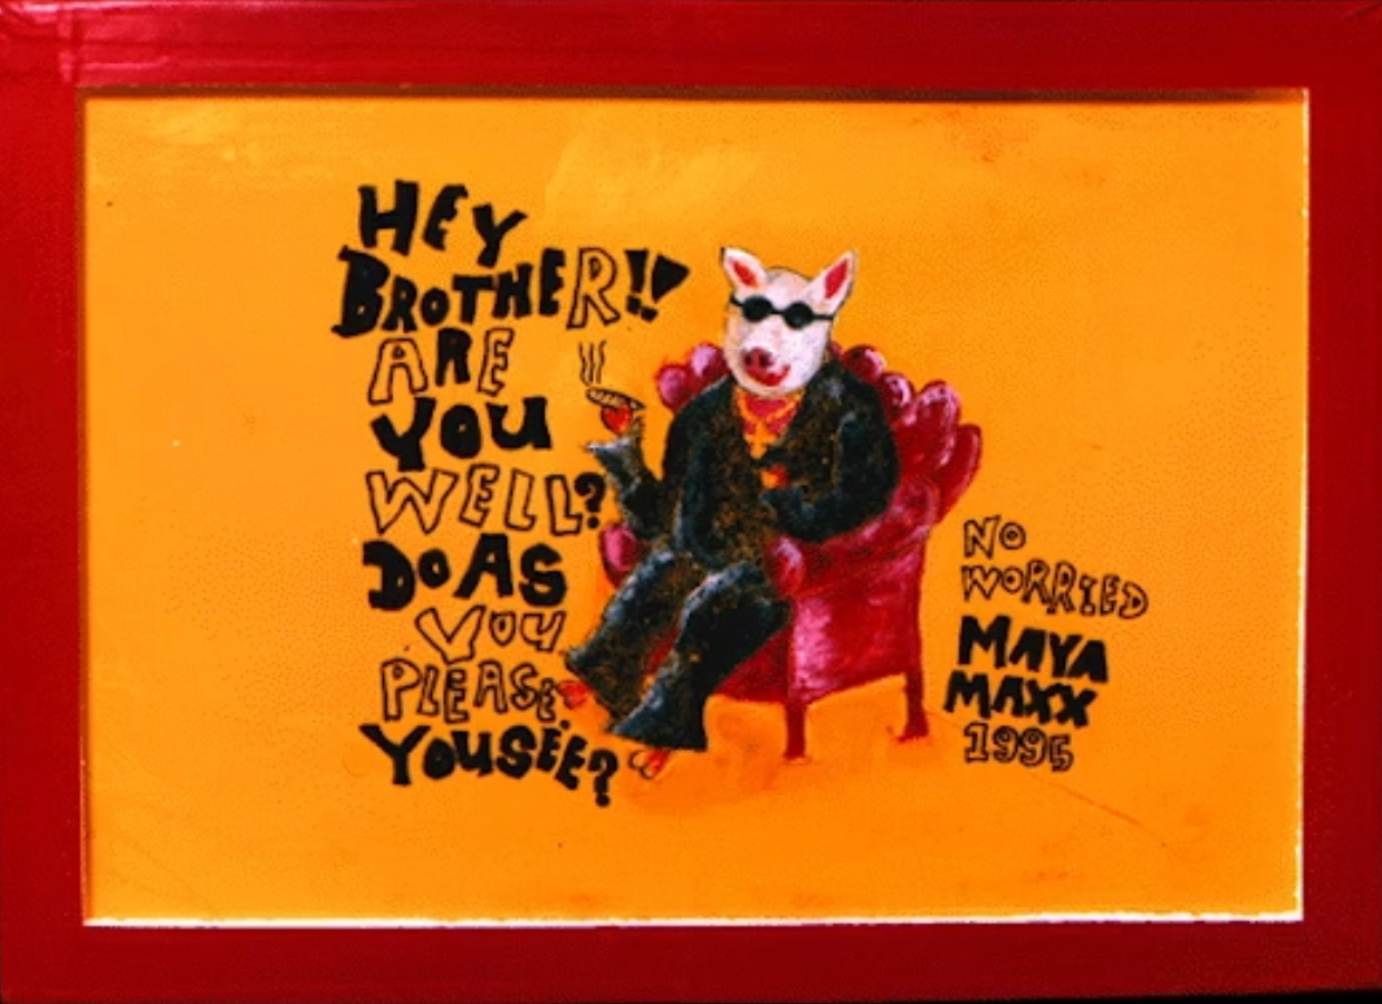 HEY
BROTHER!!
ARE
YOU
WELL?
DO AS
YOU
PLEASE.
YOU SEE?
NO
WORRIED
MAYA
MAXX
1995